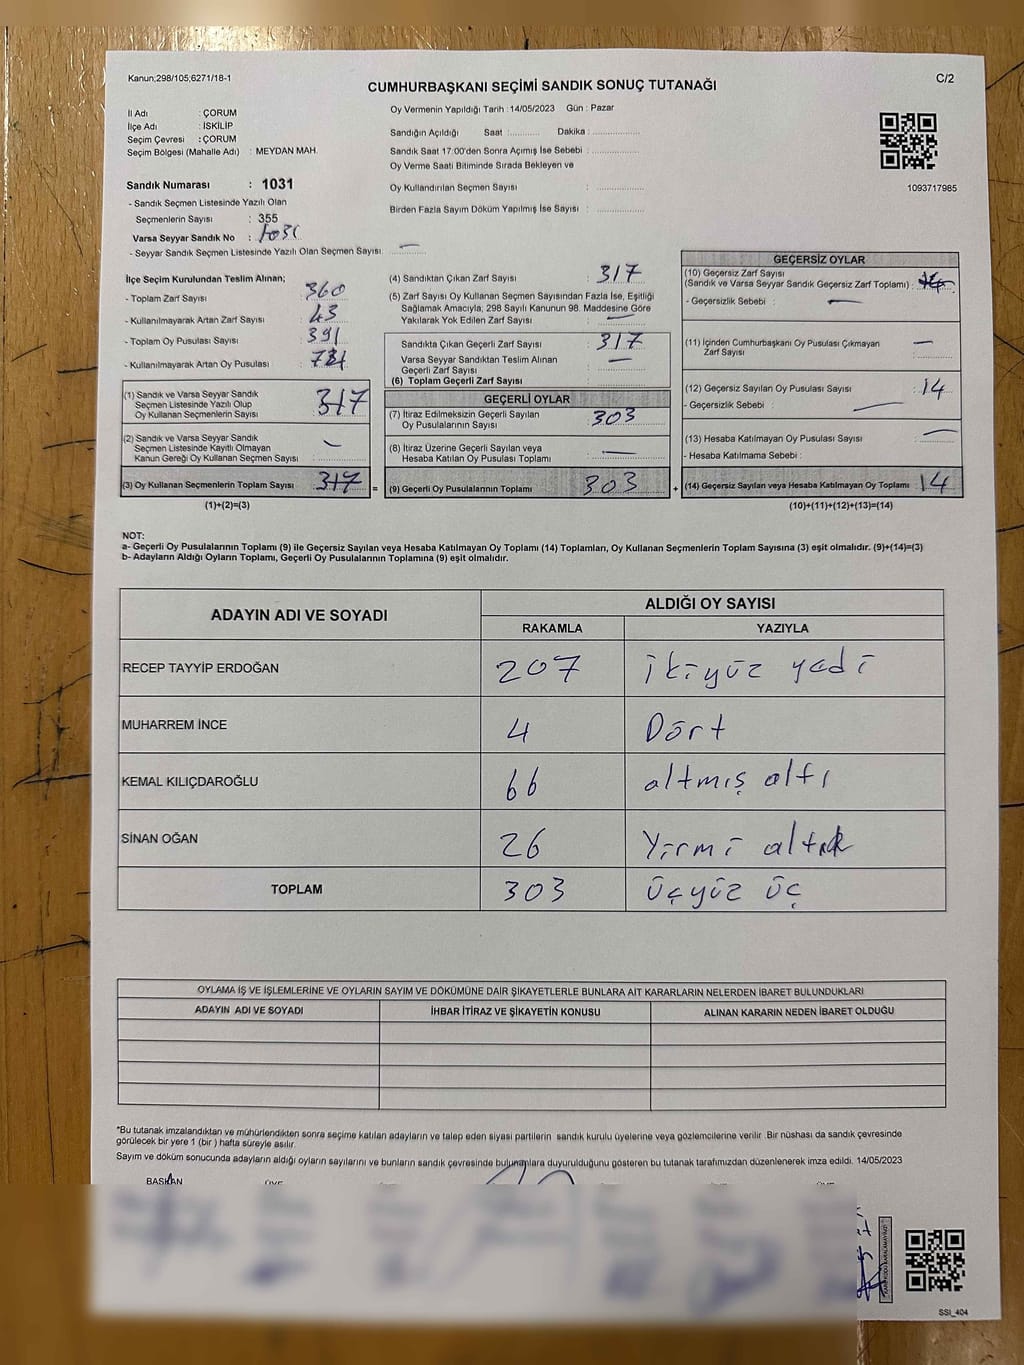 Kanun;298/105;6271/18-1
C/2
CUMHURBAŞKANI SEÇİMİ SANDIK SONUÇ TUTANAĞI
İl Adı : ÇORUM
İlçe Adı : İSKİLİP
Seçim Çevresi : ÇORUM
Seçim Bölgesi (Mahalle Adı) : MEYDAN MAH.
Oy Vermenin Yapıldığı Tarih : 14/05/2023 Gün : Pazar
Sandığın Açıldığı Saat :........... Dakika :..................
Sandık Saat 17:00'den Sonra Açımış İse Sebebi : ..................
Oy Verme Saati Bitiminde Sırada Bekleyen ve
Oy Kullandırılan Seçmen Sayısı : ..................
Birden Fazla Sayım Döküm Yapılmış İse Sayısı : ..................
1093717985
Sandık Numarası : 1031
- Sandık Seçmen Listesinde Yazılı Olan
Seçmenlerin Sayısı : 355
Varsa Seyyar Sandık No : 1031
- Seyyar Sandık Seçmen Listesinde Yazılı Olan Seçmen Sayısı : —
İlçe Seçim Kurulundan Teslim Alınan;
- Toplam Zarf Sayısı : 360
- Kullanılmayarak Artan Zarf Sayısı : 43
- Toplam Oy Pusulası Sayısı : 391
- Kullanılmayarak Artan Oy Pusulası :
(1) Sandık ve Varsa Seyyar Sandık
Seçmen Listesinde Yazılı Olup
Oy Kullanan Seçmenlerin Sayısı : 317
(2) Sandık ve Varsa Seyyar Sandık
Seçmen Listesinde Kayıtlı Olmayan
Kanun Gereği Oy Kullanan Seçmen Sayısı : —
(3) Oy Kullanan Seçmenlerin Toplam Sayısı : 317 =
(1)+(2)=(3)
(4) Sandıktan Çıkan Zarf Sayısı : 317
(5) Zarf Sayısı Oy Kullanan Seçmen Sayısından Fazla İse, Eşitliği
Sağlamak Amacıyla, 298 Sayılı Kanunun 98. Maddesine Göre
Yakılarak Yok Edilen Zarf Sayısı : —
Sandıkta Çıkan Geçerli Zarf Sayısı : 317
Varsa Seyyar Sandıktan Teslim Alınan
Geçerli Zarf Sayısı : —
(6) Toplam Geçerli Zarf Sayısı :
GEÇERLİ OYLAR
(7) İtiraz Edilmeksizin Geçerli Sayılan
Oy Pusulalarının Sayısı : 303
(8) İtiraz Üzerine Geçerli Sayılan veya
Hesaba Katılan Oy Pusulası Toplamı : —
(9) Geçerli Oy Pusulalarının Toplamı : 303 +
GEÇERSİZ OYLAR
(10) Geçersiz Zarf Sayısı
(Sandık ve Varsa Seyyar Sandık Geçersiz Zarf Toplamı) :
- Geçersizlik Sebebi : —
(11) İçinden Cumhurbaşkanı Oy Pusulası Çıkmayan
Zarf Sayısı : —
(12) Geçersiz Sayılan Oy Pusulası Sayısı : 14
- Geçersizlik Sebebi : —
(13) Hesaba Katılmayan Oy Pusulası Sayısı : —
- Hesaba Katılmama Sebebi :
(14) Geçersiz Sayılan veya Hesaba Katılmayan Oy Toplamı : 14
(10)+(11)+(12)+(13)=(14)
NOT:
a- Geçerli Oy Pusulalarının Toplamı (9) ile Geçersiz Sayılan veya Hesaba Katılmayan Oy Toplamı (14) Toplamları, Oy Kullanan Seçmenlerin Toplam Sayısına (3) eşit olmalıdır. (9)+(14)=(3)
b- Adayların Aldığı Oyların Toplamı, Geçerli Oy Pusulalarının Toplamına (9) eşit olmalıdır.
ADAYIN ADI VE SOYADI ALDIĞI OY SAYISI
RAKAMLA YAZIYLA
RECEP TAYYİP ERDOĞAN 207 ikiyüz yedi
MUHARREM İNCE 4 Dört
KEMAL KILIÇDAROĞLU 66 altmış altı
SİNAN OĞAN 26 Yirmi altı
TOPLAM 303 üçyüz üç
OYLAMA İŞ VE İŞLEMLERİNE VE OYLARIN SAYIM VE DÖKÜMÜNE DAİR ŞİKAYETLERLE BUNLARA AİT KARARLARIN NELERDEN İBARET BULUNDUKLARI
ADAYIN ADI VE SOYADI İHBAR İTİRAZ VE ŞİKAYETİN KONUSU ALINAN KARARIN NEDEN İBARET OLDUĞU
*Bu tutanak imzalandıktan ve mühürlendikten sonra seçime katılan adayların ve talep eden siyasi partilerin sandık kurulu üyelerine veya gözlemcilerine verilir. Bir nüshası da sandık çevresinde
görülecek bir yere 1 (bir) hafta süreyle asılır.
Sayım ve döküm sonucunda adayların aldığı oyların sayılarını ve bunların sandık çevresinde bulunanlara duyurulduğunu gösteren bu tutanak tarafımızdan düzenlenerek imza edildi. 14/05/2023
BAŞKAN ÜYE
SSI_404